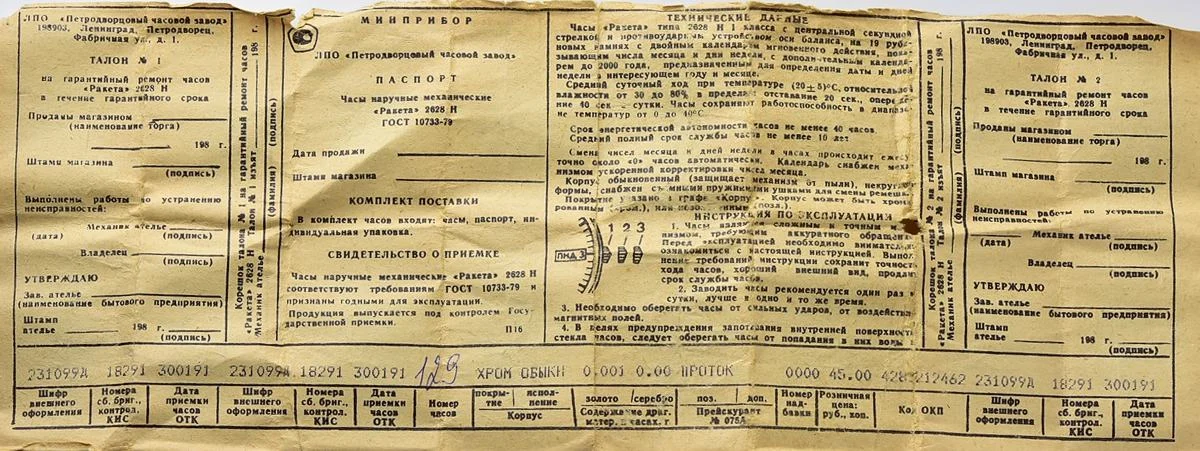 ЛПО «Петродворцовый часовой завод»
198903, Ленинград, Петродворец,
Фабричная ул., д. 1.
ТАЛОН № 1
на гарантийный ремонт часов
«Ракета» 2628 Н
в течение гарантийного срока
Проданы магазином
(наименование торга)
198 г.
Штамп магазина
(подпись)
Выполнены работы по устранению
неисправностей:
Механик ателье
(дата) (подпись)
Владелец
(подпись)
УТВЕРЖДАЮ
Зав. ателье
(наименование бытового предприятия)
Штамп
ателье 198 г.
(подпись)
Корешок талона № 1 на гарантийный ремонт часов
«Ракета» 2628 Н Талон № 1 изъят 198 г.
Механик ателье (фамилия) (подпись)
МИНПРИБОР
ЛПО «Петродворцовый часовой завод»
ПАСПОРТ
Часы наручные механические
«Ракета» 2628 Н
ГОСТ 10733-79
Дата продажи
Штамп магазина
КОМПЛЕКТ ПОСТАВКИ
В комплект часов входят: часы, паспорт, ин-
дивидуальная упаковка.
СВИДЕТЕЛЬСТВО О ПРИЕМКЕ
Часы наручные механические «Ракета» 2628 Н
соответствуют требованиям ГОСТ 10733-79 и
признаны годными для эксплуатации.
Продукция выпускается под контролем Госу-
дарственной приемки.
П16
ТЕХНИЧЕСКИЕ ДАННЫЕ
Часы «Ракета» типа 2628 Н 1 класса с центральной секундной
стрелкой и противоударным устройством оси баланса, на 19 руби-
новых камнях с двойным календарем мгновенного действия, пока-
зывающим числа месяца и дни недели, с дополнительным календа-
рем до 2000 года, предназначенным для определения даты и дней
недели в интересующем году и месяце.
Средний суточный ход при температуре (20±5)°С, относительной
влажности от 30 до 80% в пределах: отставание 20 сек., опереже-
ние 40 сек сутки. Часы сохраняют работоспособность в диапазоне
не температур от 0 до 40°С.
Срок энергетической автономности часов не менее 40 часов.
Средний полный срок службы часов не менее 10 лет.
Смена чисел месяца и дней недели в часах происходит
точно около «0» часов автоматически. Календарь снабжен меха-
низмом ускоренной корректировки числа месяца.
Корпус обыкновенный (защищает механизм от пыли), некруглой
формы, снабжен съемными пружинными ушками для смены ремешка.
Покрытие указано в графе «Корпус». Корпус может быть хроми-
рованным (хром.), или позолоченным (позл.).
ИНСТРУКЦИЯ ПО ЭКСПЛУАТАЦИИ
1 2 3
ПНД 3
1. Часы являются сложным и точным
низмом, требующим аккуратного обращения.
Перед эксплуатацией необходимо внимательно
ознакомиться с настоящей инструкцией. Выпол-
нение требований инструкции сохранит точность
хода часов, хороший внешний вид,
срок службы часов.
2. Заводить часы рекомендуется один раз в
сутки, лучше в одно и то же время.
3. Необходимо оберегать часы от сильных ударов, от воздействия
магнитных полей.
4. В целях предупреждения запотевания внутренней поверхности
стекла часов, следует оберегать часы от попадания в них воды
Корешок талона № 2 на гарантийный ремонт часов
«Ракета» 2628 Н Талон № 2 изъят 198 г.
Механик ателье (фамилия) (подпись)
ЛПО «Петродворцовый часовой завод»
198903, Ленинград, Петродворец,
Фабричная ул., д. 1.
ТАЛОН № 2
на гарантийный ремонт часов
«Ракета» 2628 Н
в течение гарантийного срока
Проданы магазином
(наименование торга)
198 г.
Штамп магазина
(подпись)
Выполнены работы по устранению
неисправностей:
Механик ателье
(дата) (подпись)
Владелец
(подпись)
УТВЕРЖДАЮ
Зав. ателье
(наименование бытового предприятия)
Штамп
ателье 198 г.
(подпись)
231099А 18291 300191 231099А 18291 300191 129 ХРОМ ОБЫКН 0.001 0.00 ПРОТОК 0000 45.00 4283212462 231099А 18291 300191
Шифр внешнего оформления
Номера сб. бриг., контрол. КИС
Дата приемки часов ОТК
Шифр внешнего оформления
Номера сб. бриг., контрол. КИС
Дата приемки часов ОТК
Номер часов
покры-тие испол-нение
Корпус
золото серебро
Содержание драг. матер. в часах, г
поз. доп.
Прейскурант № 075А
Номер над-бавки
Розничная цена: руб., коп.
Код ОКП
Шифр внешнего оформления
Номера сб. бриг., контрол. КИС
Дата приемки часов ОТК